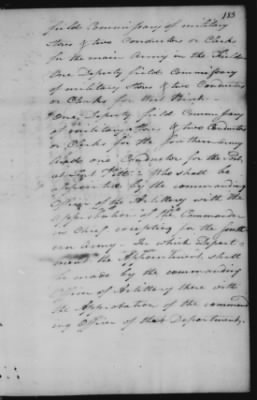 183
field Commissary of military
Stores & two Conductors or Clerks
for the main Army in the field
One Deputy field Commissary
of military Stores & two Conductors
or Clerks for West Point.
One Deputy field Commissary
of military Stores & two Conductors
or Clerks for the Southern Army
one Conductor for the
at Fort Pitt. Who shall be
appointed by the commanding
Officer of the Artillery with the
approbation of the Commander
in Chief excepting for the South
ern Army. In which Depart
ment the Appointment shall
be made by the commanding
Officer of Artillery there with
the Approbation of the command
ing Officer of that Department.